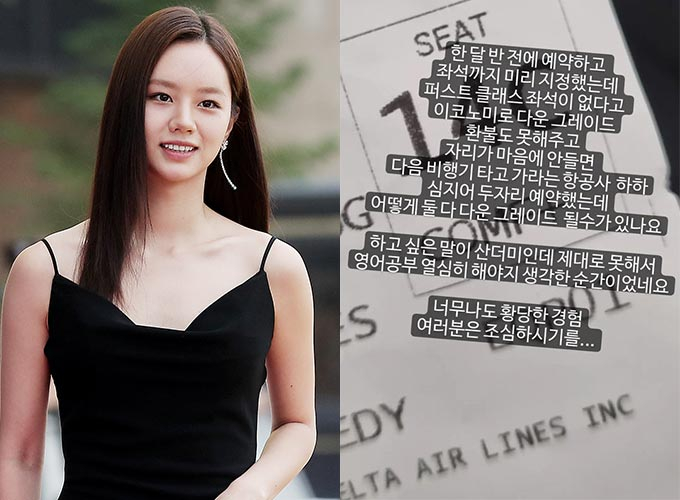 SEAT
한 달 반 전에 예약하고
좌석까지 미리 지정했는데
퍼스트 클래스 좌석이 없다고
이코노미로 다운 그레이드
환불도 못해주고
자리가 마음에 안들면
다음 비행기 타고 가라는 항공사 하하
심지어 두자리 예약했는데
어떻게 둘 다 다운 그레이드 될수가 있나요
하고 싶은 말이 산더미인데 제대로 못해서
영어공부 열심히 해야지 생각한 순간이었네요
너무나도 황당한 경험
여러분은 조심하시기를...
EDY
ELTA AIR LINES INC